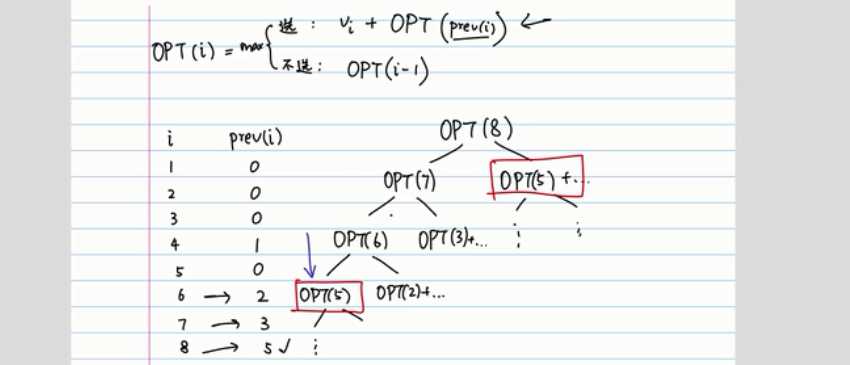 OPT(i) = max
选： vi + OPT (prev(i)) ←
不选： OPT(i-1)
i prev(i)
1 0
2 0
3 0
4 1
5 0
6 → 2
7 → 3
8 → 5 ✓
OPT(8)
OPT(7) OPT(5) + ...
OPT(6) OPT(3)+... ⋮ ⋮
OPT(5) OPT(2)+...
⋮